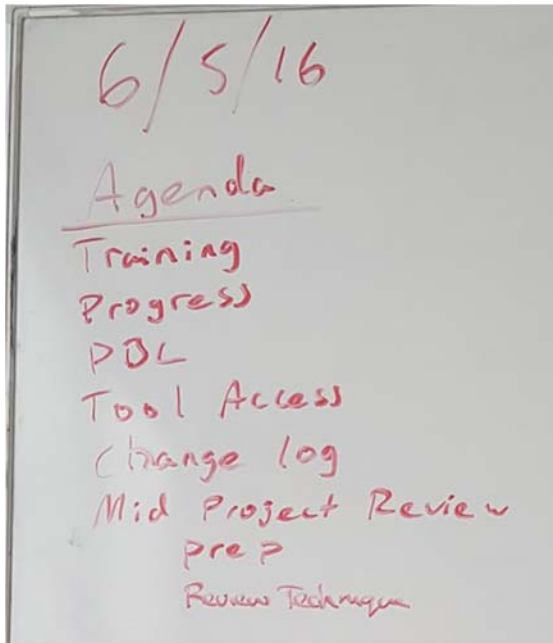 6/5/16
Agenda
Training
Progress
PBL
Tool Access
Change log
Mid Project Review
prep
Review Technique